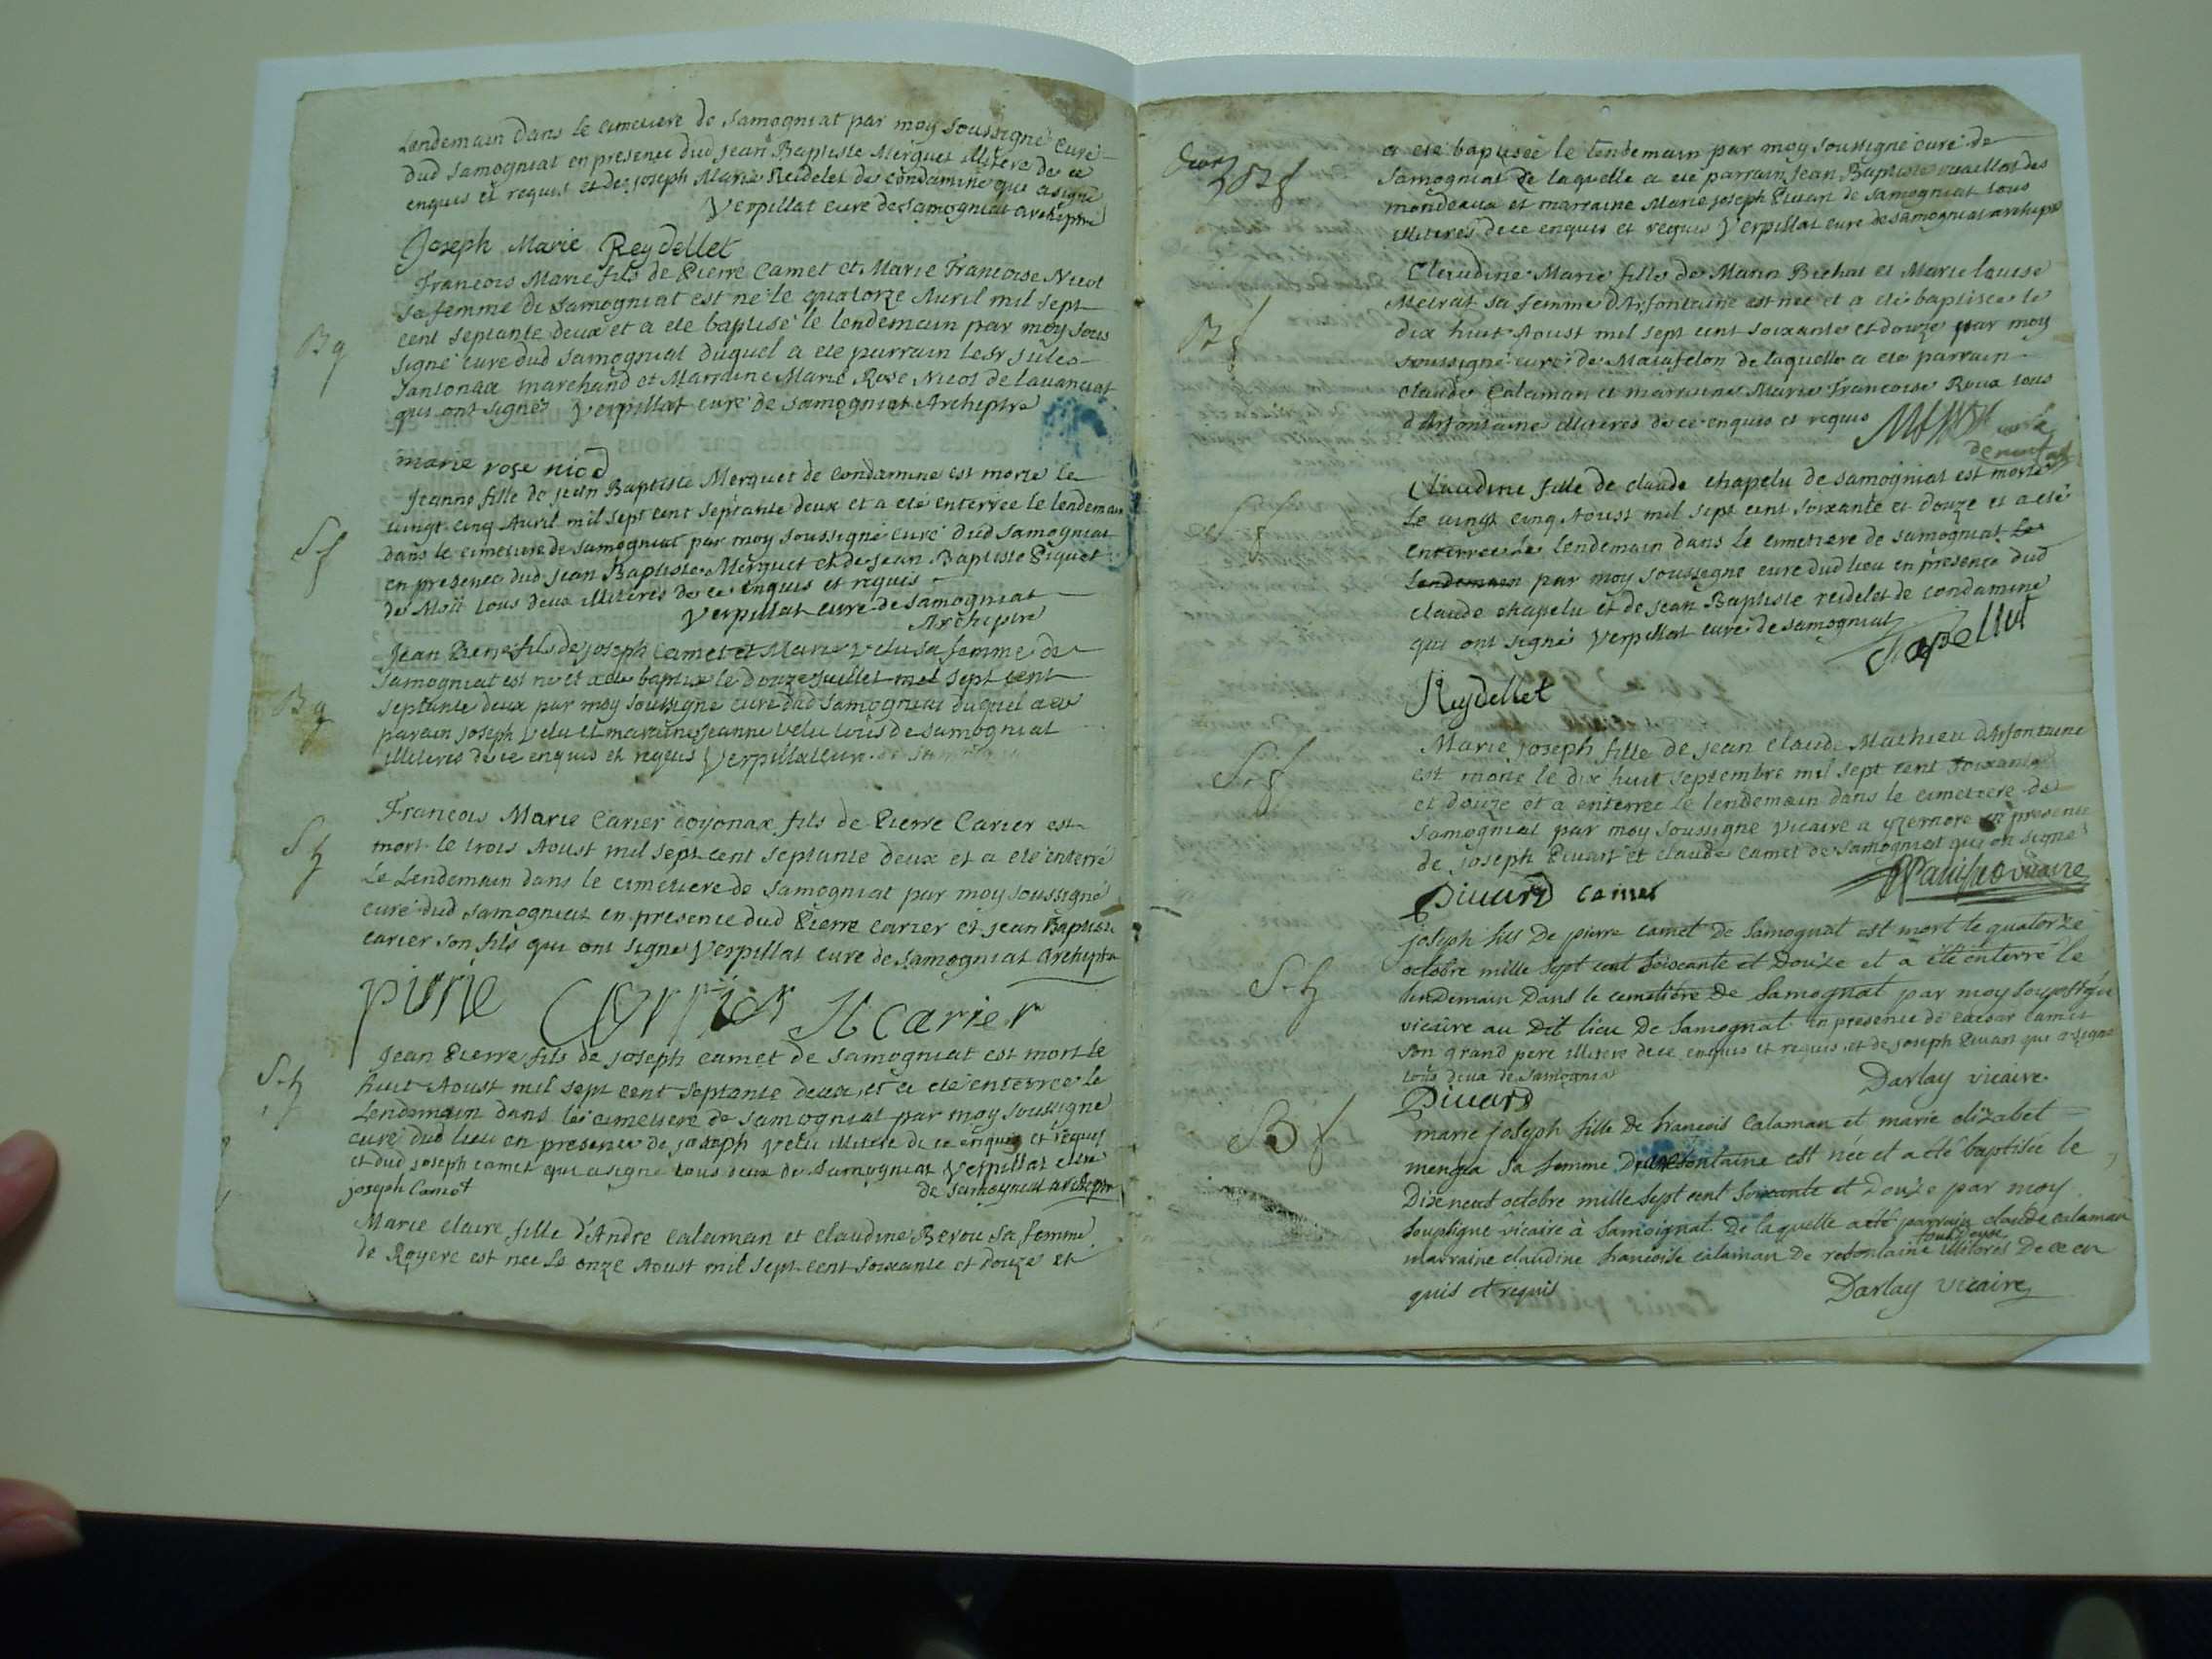 Lendemain dans le cimetiere de Samogniat par moy soussigné curé
dud Samogniat en presence dud jean Baptiste Merguet illitere de ce
enquis et requis et de joseph Marie Reidelet de condamine qui a signé
Verpillat curé de Samogniat archiptre
Joseph Marie Reydellet
Francois Marie fils de Pierre Camet et Marie Francoise Nicot
sa femme de Samogniat est né le quatorze Avril mil sept
Bg
cent septante deux et a ete baptisé le lendemain par moy sous
signé curé dud Samogniat duquel a ete parrain le sr jules
Jantonax marchand et Marraine Marie Rose Nicot de lavanciat
qui ont signés Verpillat curé de Samogniat Archiptre
marie rose nicod
Jeanne fille de jean Baptiste Merguet de Condamine est morte le
vingt cinq Avril mil sept cent septante deux et a eté enterrée le lendemain
Sf
dans le cimetiere de Samogniat par moy soussigné curé dud Samogniat
en presence dud jean Baptiste Merguet et de jean Baptiste Piquet
de Moü tous deux illiteres de ce enquis et requis
Verpillat curé de Samogniat
Archiptre
Jean Pierre fils de joseph Camet et Marie Velu sa femme de
Samogniat est né et a ete baptisé le douze juillet mil sept cent
Bg
septante deux par moy soussigné curé dud Samogniat duquel a ete
parain joseph Velu et maraine jeanne Velu tous de Samogniat
illiteres de ce enquis et requis Verpillat cure de Samogniat
Francois Marie Carier doyonax fils de Pierre Carier est
Sg
mort le trois Aoust mil sept cent septante deux et a ete enterré
Le Lendemain dans le cimetiere de Samogniat par moy soussigné
curé dud Samogniat en presence dud Pierre Carier et jean Baptiste
carier son fils qui ont signé Verpillat curé de Samogniat Archiptre
pirrie Carrier JB carier
Jean Pierre fils de joseph camet de Samogniat est mort le
Sg
huit Aoust mil sept cent septante deux et a eté enterré le
Lendemain dans le cimetiere de Samogniat par moy soussigné
curé dud lieu en presence de joseph Velu illitere de ce enquis et requis
et dud joseph camet qui a signé tous deux de Samogniat Verpillat curé
joseph Camet de Samogniat archiptr
Marie claire fille d'Andre Calaman et Claudine Berou sa femme
de Royere est née le onze Aoust mil sept cent soixante et douze et
a eté baptisée le lendemain par moy soussigné curé de
Samogniat de laquelle a eté parrain Jean Baptiste vuaillat des
mondeaux et marraine Marie joseph Pivan de Samogniat tous
illiterés de ce enquis et requis Verpillat curé de Samogniat archiptr
Claudine Marie fille de Marin Bichat et Marie Louise
Meirat sa femme d'Arfontaine est née et a été baptisée le
Bf
dix huit Aoust mil sept cent soixante et douze par moy
soussigné curé de Matafelon de laquelle a eté parrain
Claude Calaman et marraine Marie Francoise Roux tous
d'Arfontaine illiteres de ce enquis et requis
Claudine fille de claude chapelu de Samogniat est morte
Le vingt cinq Aoust mil sept cent soixante et douze et a eté
Sf
enterrée le lendemain dans le cimetiere de Samogniat Le
Lendemain par moy soussigné curé dud lieu en présence dud
claude chapelu et de jean Baptiste reidelet de condamine
qui ont signé Verpillat curé de Samogniat
Reydellet
Marie joseph fille de jean claude Mathieu d'Arfontaine
Sf
est morte le dix huit septembre mil sept cent soixante
et douze et a enterrée le lendemain dans le cimetiere de
Samogniat par moy soussigné vicaire a yzernore en presence
de joseph Pivart et claude camet de Samogniat qui on signé
Pivard camet
joseph fils De pierre camet De Samognat est mort le quatorze
octobre mille sept cent soiscante et Douze et a été enterré le
Sg
lendemain Dans le cemetière De Samognat par moy
vicaire au Dit lieu De Samognat en presence de caesar camet
son grand pere illitere de ce enquis et requis et de joseph Pivart qui a signé
tous deux de Samogniat Darlay vicaire
Pivard
marie joseph fille De francois Calaman et marie elizabet
Bf
sa femme est née et a été baptisée le
Dixneuf octobre mille sept cent soixante et Douze par moy
soupsigné vicaire à Samoignat De laquelle a été parrain claude calaman
marraine claudine francoise calaman De refontaine tout Deux illitores De ce en
quis et requis Darlay vicaire